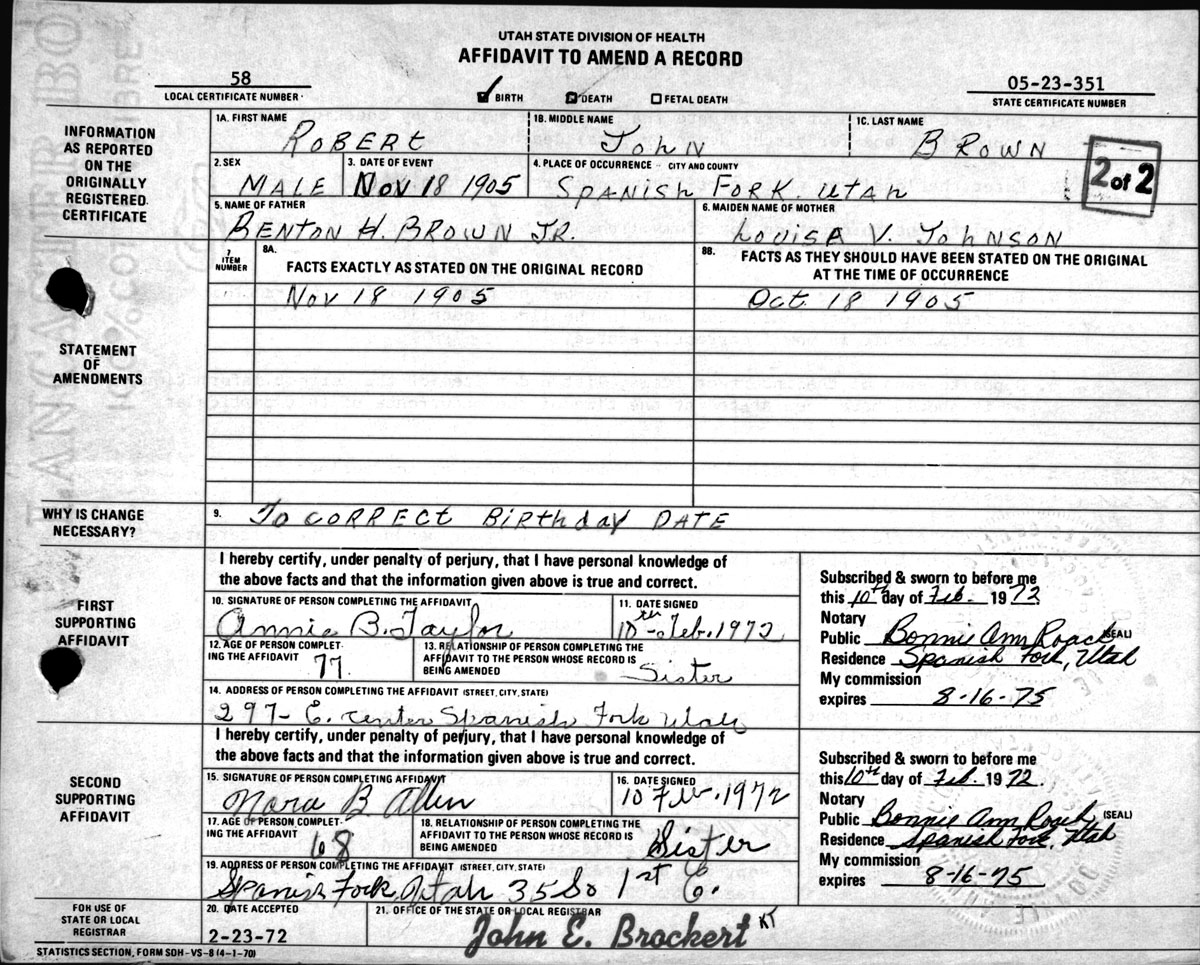 UTAH STATE DIVISION OF HEALTH
AFFIDAVIT TO AMEND A RECORD
58
LOCAL CERTIFICATE NUMBER
BIRTH DEATH FETAL DEATH
05-23-351
STATE CERTIFICATE NUMBER
INFORMATION AS REPORTED ON THE ORIGINALLY REGISTERED CERTIFICATE
1A. FIRST NAME
ROBERT
1B. MIDDLE NAME
John
1C. LAST NAME
BROWN
2 of 2
2. SEX
MALE
3. DATE OF EVENT
Nov 18 1905
4. PLACE OF OCCURRENCE - CITY AND COUNTY
SPANISH FORK UTAH
5. NAME OF FATHER
BENTON H. BROWN JR.
6. MAIDEN NAME OF MOTHER
LOUISA V. JOHNSON
STATEMENT OF AMENDMENTS
7 ITEM NUMBER
8A. FACTS EXACTLY AS STATED ON THE ORIGINAL RECORD
8B. FACTS AS THEY SHOULD HAVE BEEN STATED ON THE ORIGINAL
AT THE TIME OF OCCURRENCE
Nov 18 1905
Oct. 18 1905
WHY IS CHANGE NECESSARY?
9. To CORRECT Birthday DATE
FIRST SUPPORTING AFFIDAVIT
I hereby certify, under penalty of perjury, that I have personal knowledge of
the above facts and that the information given above is true and correct.
10. SIGNATURE OF PERSON COMPLETING THE AFFIDAVIT
Annie B. Taylor
11. DATE SIGNED
10th-Feb. 1972
12. AGE OF PERSON COMPLETING THE AFFIDAVIT
77.
13. RELATIONSHIP OF PERSON COMPLETING THE
AFFIDAVIT TO THE PERSON WHOSE RECORD IS
BEING AMENDED
Sister
14. ADDRESS OF PERSON COMPLETING THE AFFIDAVIT (STREET, CITY, STATE)
297- E. Center Spanish Fork Utah
Subscribed & sworn to before me
this 10th day of Feb. 1972
Notary
Public Bonnie Ann Roach (SEAL)
Residence Spanish Fork, Utah
My commission
expires 8-16-75
SECOND SUPPORTING AFFIDAVIT
I hereby certify, under penalty of perjury, that I have personal knowledge of
the above facts and that the information given above is true and correct.
15. SIGNATURE OF PERSON COMPLETING AFFIDAVIT
Nora B. Allen
16. DATE SIGNED
10 Feb. 1972
17. AGE OF PERSON COMPLETING THE AFFIDAVIT
68
18. RELATIONSHIP OF PERSON COMPLETING THE
AFFIDAVIT TO THE PERSON WHOSE RECORD IS
BEING AMENDED
Sister
19. ADDRESS OF PERSON COMPLETING THE AFFIDAVIT (STREET, CITY, STATE)
Spanish Fork, Utah 35 So 1st E.
Subscribed & sworn to before me
this 10th day of Feb. 1972.
Notary
Public Bonnie Ann Roach (SEAL)
Residence Spanish Fork, Utah
My commission
expires 8-16-75
FOR USE OF STATE OR LOCAL REGISTRAR
20. DATE ACCEPTED
2-23-72
21. OFFICE OF THE STATE OR LOCAL REGISTRAR
John E. Brockert KT
STATISTICS SECTION, FORM SDH-VS-8 (4-1-70)